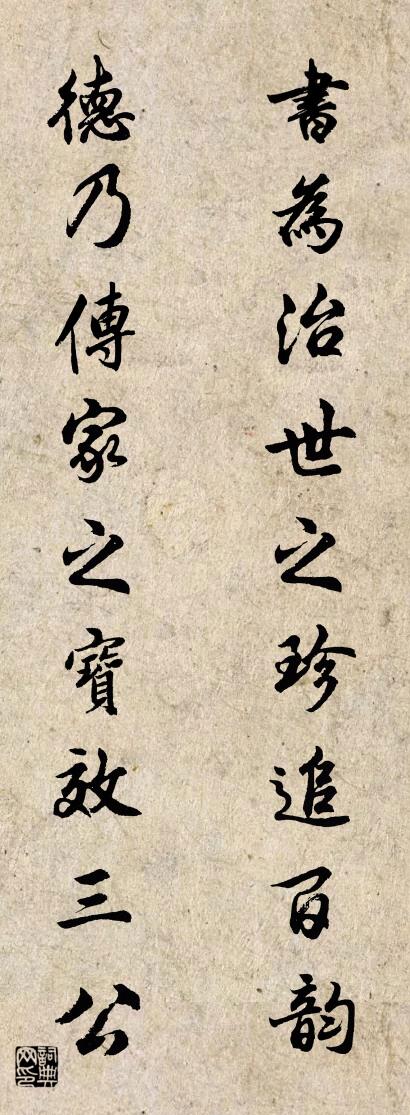 書為治世之珍追百韵
德乃傳家之寶效三公
詞典网印